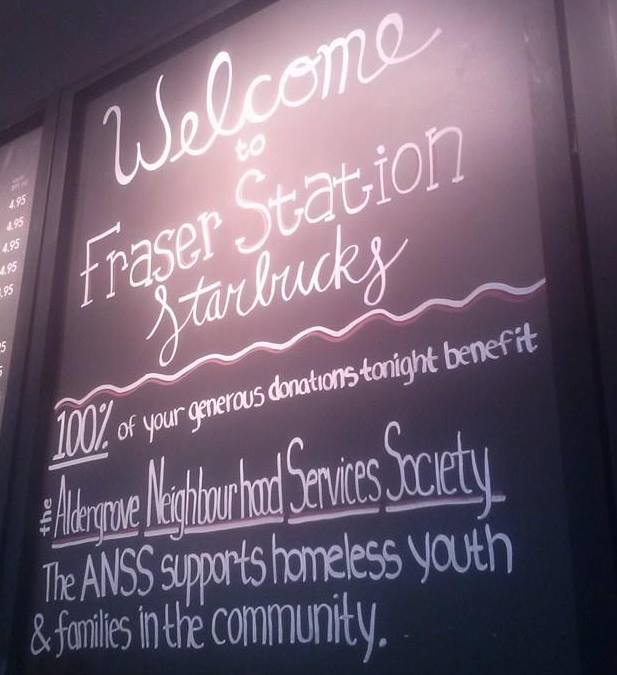 Welcome
to
Fraser Station
Starbucks
100% of your generous donations tonight benefit
the Aldergrove Neighbourhood Services Society
The ANSS supports homeless youth
& families in the community.
4.95
4.95
4.95
4.95